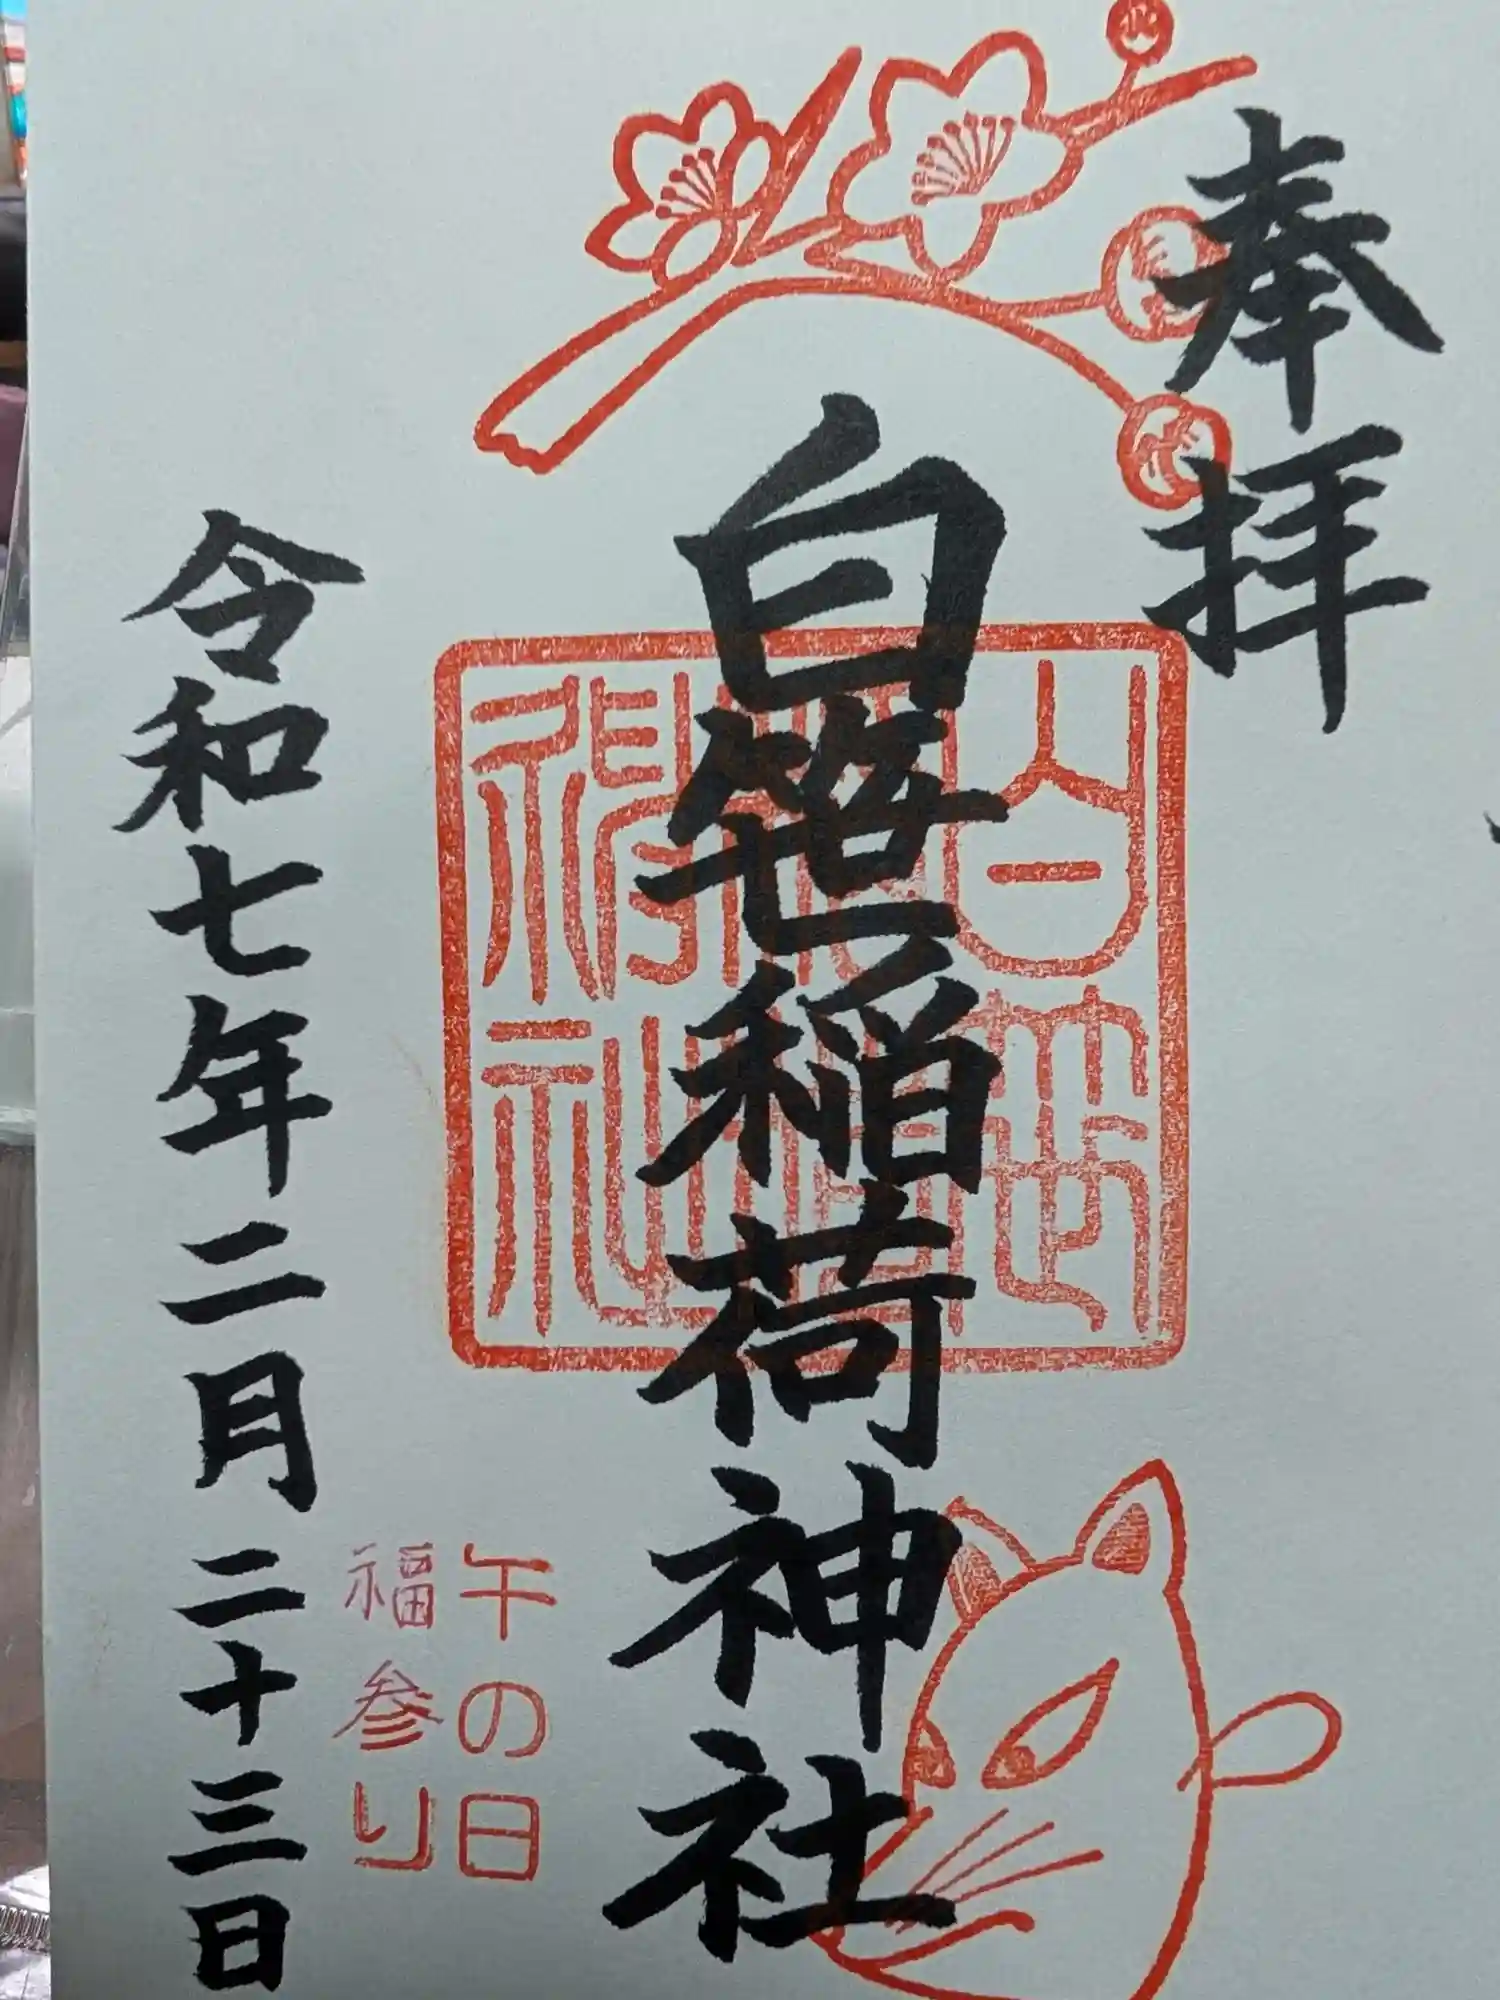 奉拝
白笹稲荷神社
白笹稲荷神社
午の日
福参り
令和七年二月二十三日